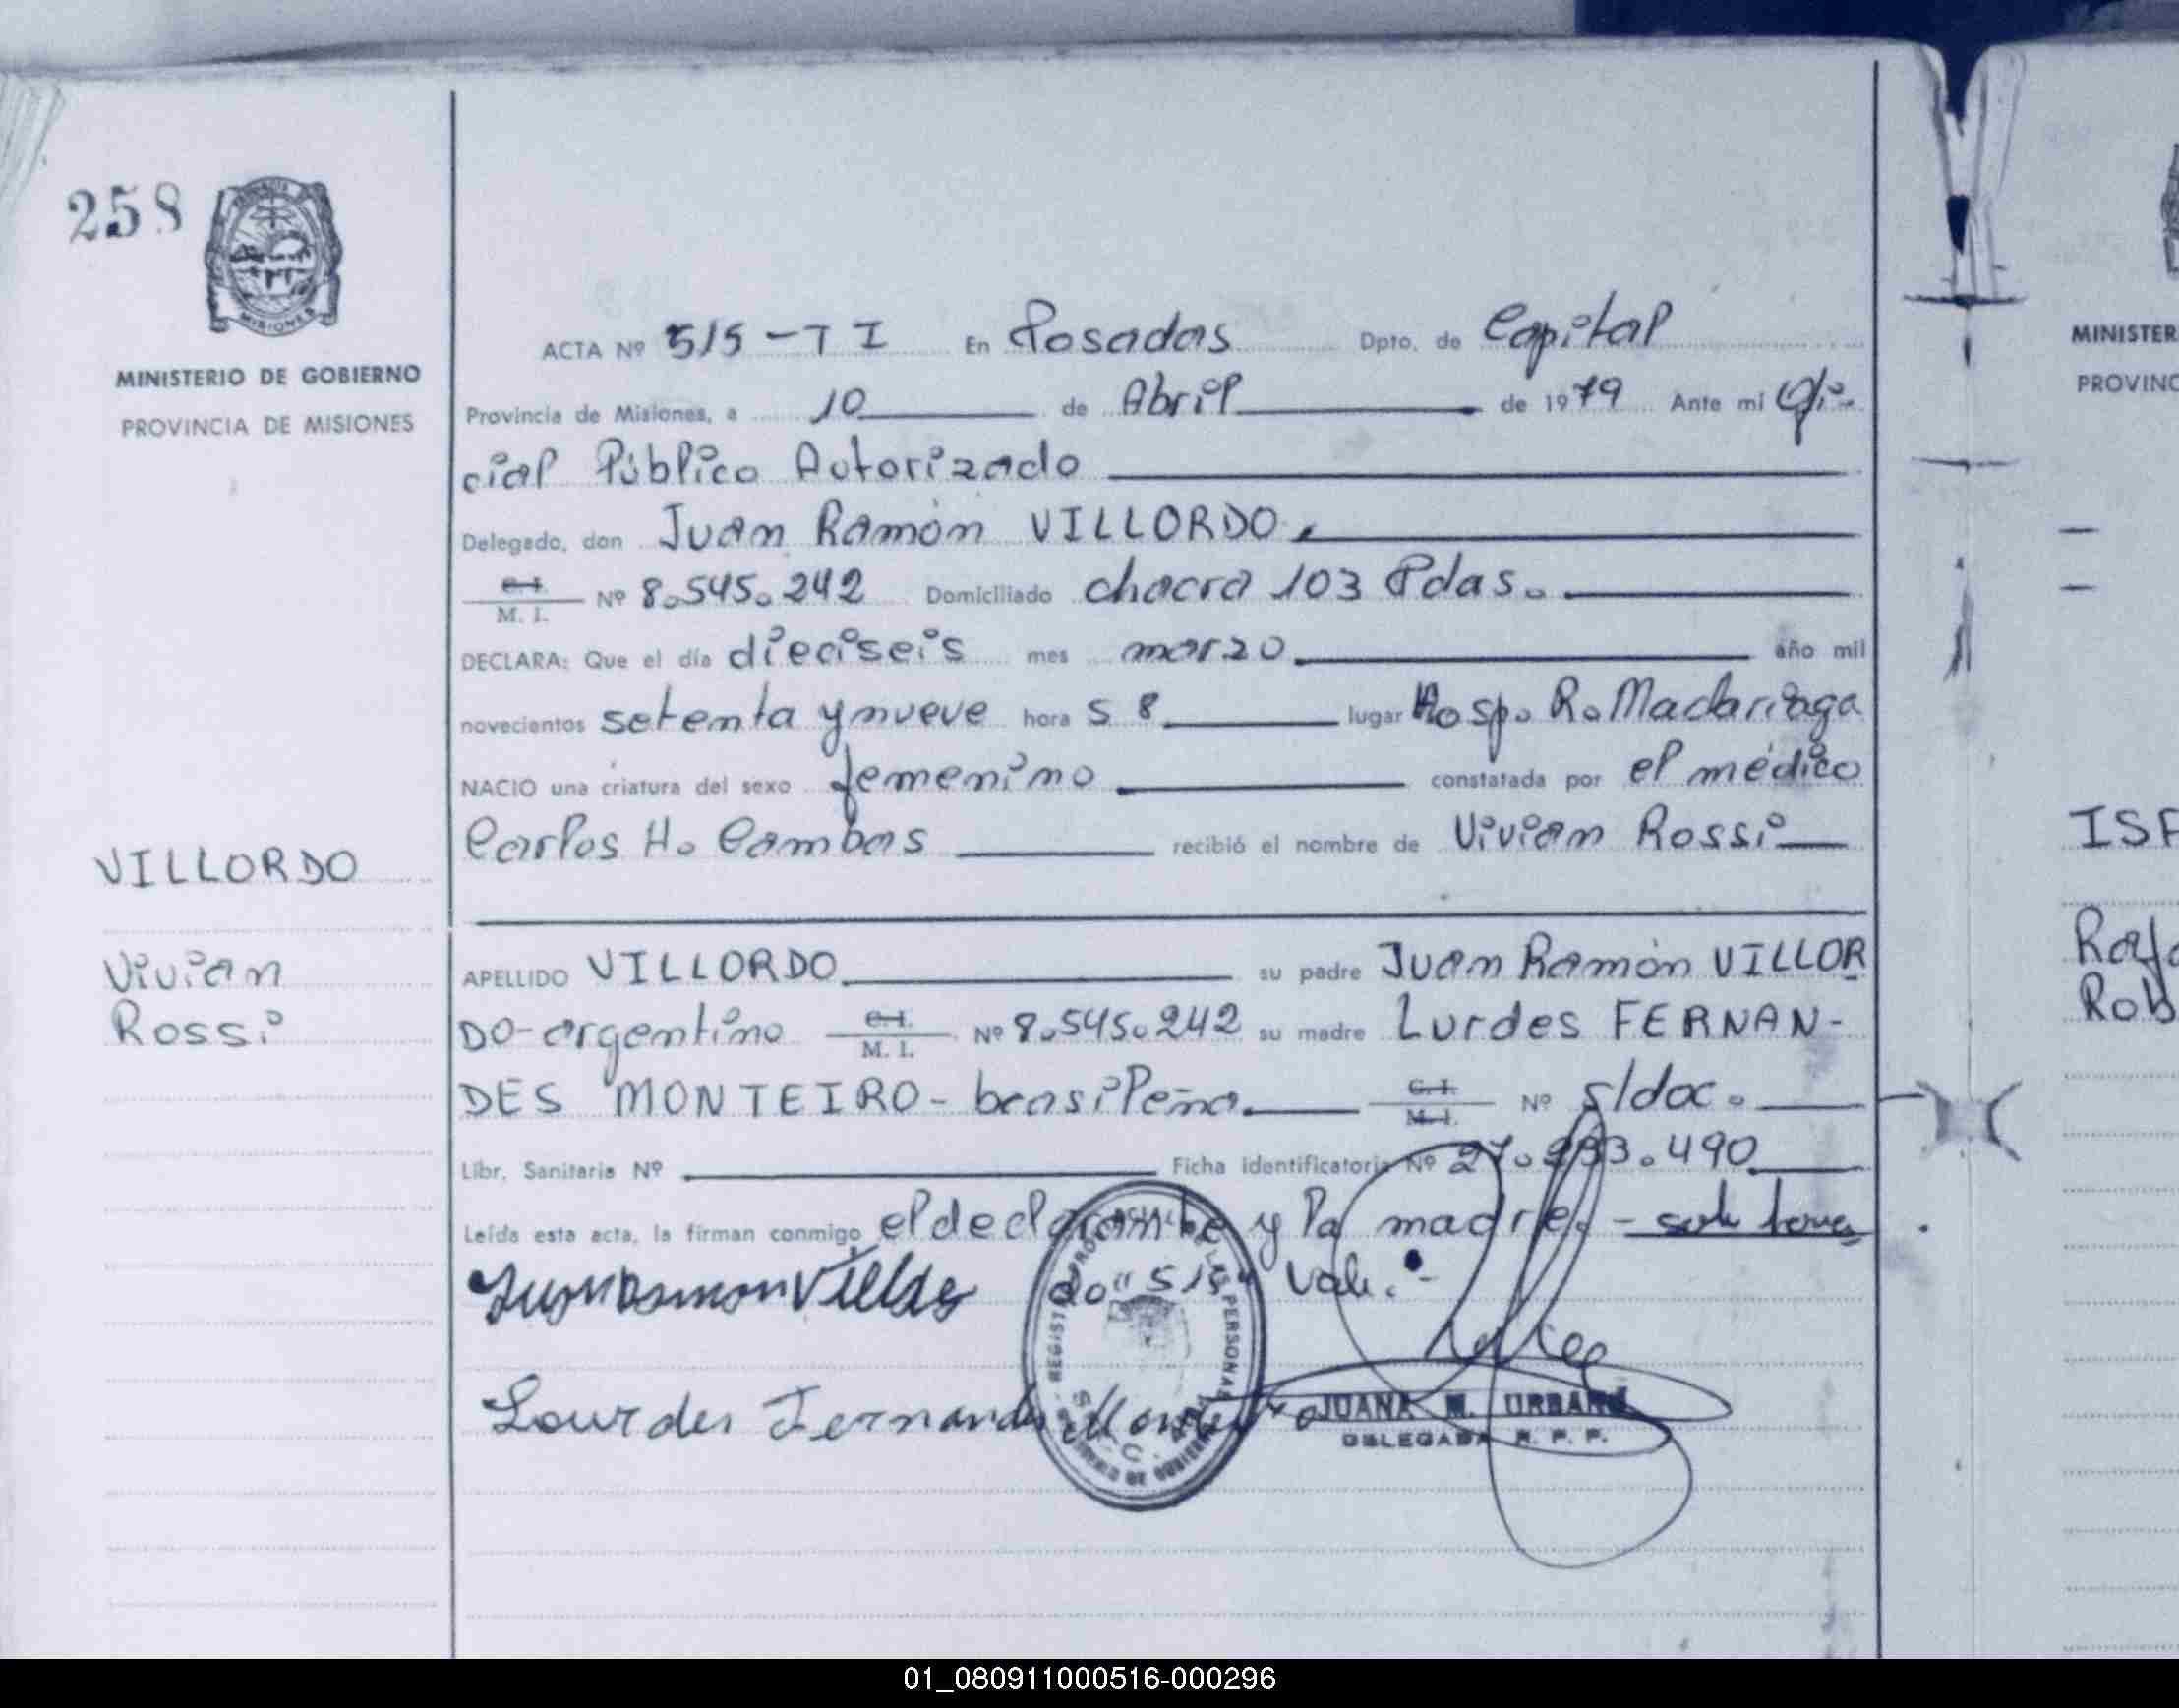 258
MISIONES
MINISTERIO DE GOBIERNO
PROVINCIA DE MISIONES
VILLORDO
Vivian
Rossi
ACTA Nº 515-T I En Posadas Dpto. de Capital
Provincia de Misiones, a 10 de Abril de 1979 Ante mi Ofi-
cial Público Autorizado
Delegado, don Juan Ramón VILLORDO.
C.I.
M. I. Nº 8.545.242 Domiciliado chacra 103 Pdas.
DECLARA: Que el día dieciseis mes marzo año mil
novecientos setenta y nueve hora s 8 lugar Hosp. R. Madariaga
NACIO una criatura del sexo femenino constatada por el médico
Carlos H. Cambas recibió el nombre de Vivian Rossi
APELLIDO VILLORDO su padre Juan Ramón VILLOR
DO-argentino C.I. M. I. Nº 8.545.242 su madre Lurdes FERNAN-
DES MONTEIRO- brasileña. C.I. M.I. Nº s/doc.
Libr. Sanitaria Nº Ficha identificatoria Nº 27.293.490
Leída esta acta, la firman conmigo el declarante y la madre.-
do "515" Vale.-
Lourdes Fernandes Monteiro
REGISTRO PROVINCIAL DE LAS PERSONAS
JUANA M. URBANO
DELEGADA R. P. P.
MINISTER
PROVINC
ISF
Rafa
Rob
01_080911000516-000296